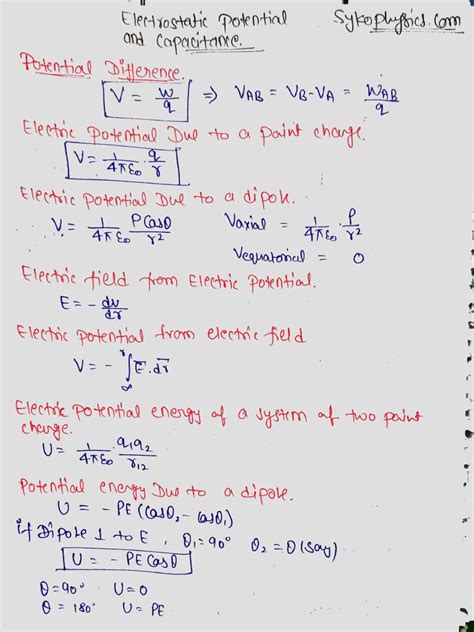 Electrostatic Potential Sykophysics.com
and Capacitance.
Potential Difference.
V = W/q ⇒ VAB = VB - VA = WAB/q
Electric Potential Due to a point charge.
V = 1/4πε₀ · q/r
Electric Potential Due to a dipole.
V = 1/4πε₀ PCosθ/r² Vaxial = 1/4πε₀ · P/r²
Vequatorial = 0
Electric field from Electric Potential.
E = - dv/dr
Electric potential from electric field
V = - ∫∞^r E⃗.dr⃗
Electric potential energy of a system of two point
charge.
U = 1/4πε₀ · q₁q₂/r₁₂
Potential energy Due to a dipole.
U = - PE (Cosθ₂ - Cosθ₁)
if Dipole ⊥ to E, θ₁ = 90° θ₂ = θ (say)
U = - PE Cosθ
θ = 90° U = 0
θ = 180° U = PE